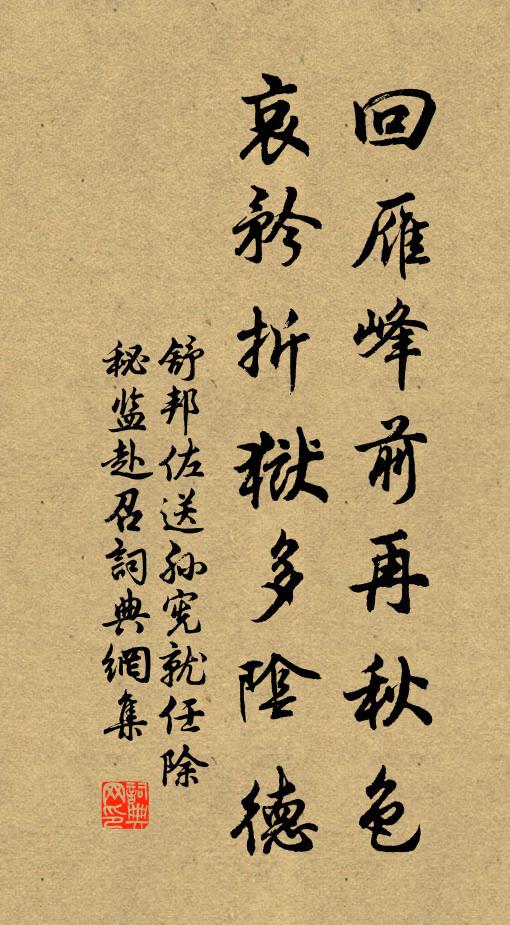 回雁峰前再秋色
哀矜折獄多陰德
舒邦佐送孙宪就任除
秘监赴召詞典網集
詞典网印